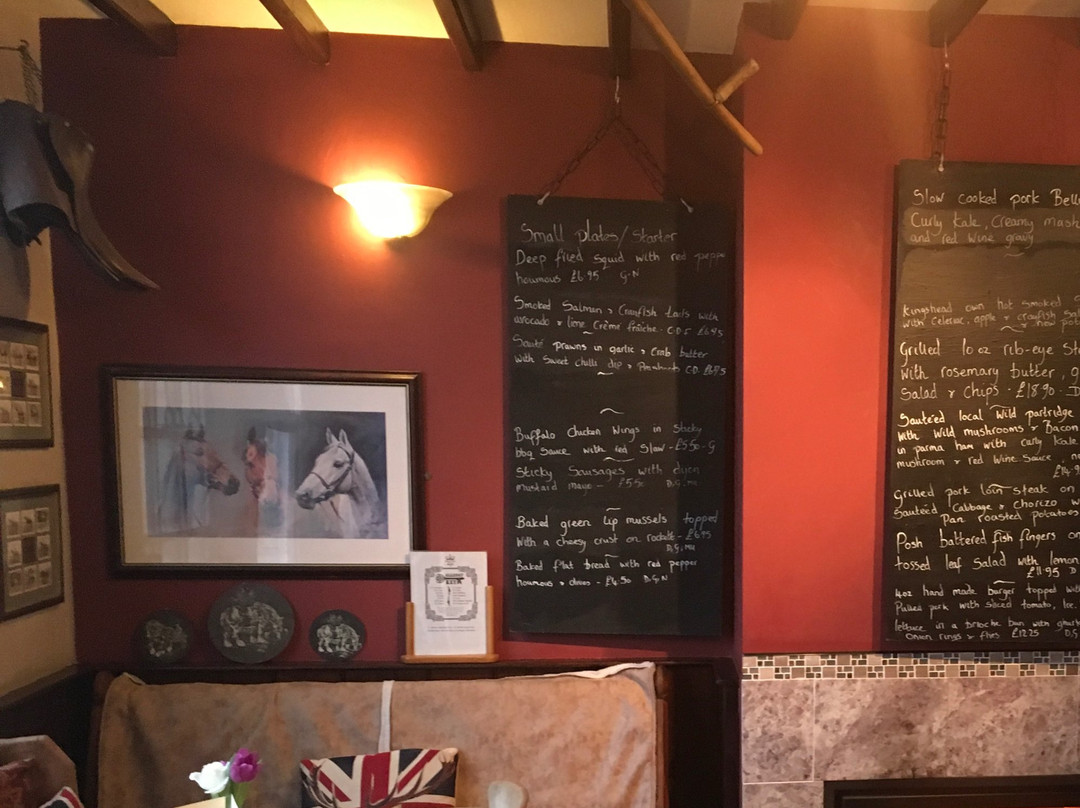 Small plates/Starter
Deep fried squid with red peppe
houmous £6.95 G.N
Smoked Salmon & Crayfish tails with
avocado & lime Crème fraîche - C.D.F £6.95
Sauté prawns in garlic & Crab butter
with Sweet chilli dip & C.D.
Buffalo Chicken Wings in Sticky
bbq Sauce with red Slaw - £5.50 - G
Sticky Sausages with dijon
mustard mayo - £5.50
Baked green lip mussels topped
with a cheesy crust on rocket - £6.95
D,G,Mu
Baked flat bread with red pepper
houmous & - £4.50 D.G.N
Slow cooked pork Bell
Curly Kale, Creamy mash
and red wine gravy
Kingshead own hot smoked S
with celeriac, apple & crayfish
& new pot
Grilled 10 oz rib-eye St
with rosemary butter, g
Salad & Chips - £18.90 - D
Sauteéd local Wild partridge
with Wild mushrooms & Bacon
in parma ham with curly Kale
mushroom & red Wine Sauce, n
Grilled pork loin steak on
Sauteéd Cabbage & Chorizo w
Pan roasted potatoes
Posh battered fish fingers on
tossed leaf Salad with lemon
£11.95 D
4oz hand made burger topped with
Pulled pork with sliced tomato, ice
lettuce in a brioche bun with
Onion rings & fries £12.25 D.G